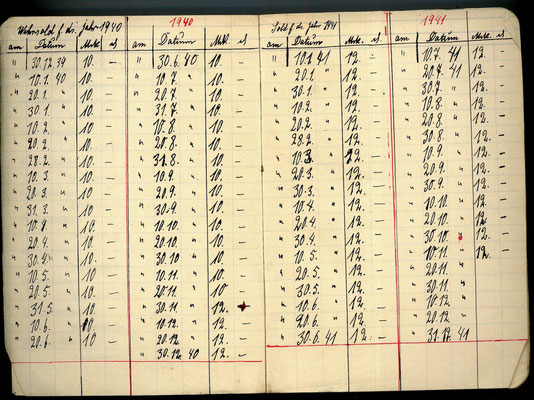 Wehrsold f. ds. Jahr 1940
am Datum Mrk. ₰
" 30.12.39 10. –
" 10.1.40 10. –
" 20.1. " 10. –
" 30.1. " 10. –
" 10.2. " 10. –
" 20.2. " 10. –
" 28.2. " 10. –
" 10.3. " 10. –
" 20.3. " 10. –
" 31.3. " 10. –
" 10.4. " 10. –
" 20.4. " 10. –
" 30.4. " 10. –
" 10.5. " 10. –
" 20.5. " 10. –
" 31.5. " 10. –
" 10.6. " 10 –
" 20.6. " 10 –
1940
am Datum Mrk. ₰
" 30.6.40 10. –
" 10.7. " 10. –
" 20.7. " 10. –
" 31.7. " 10. –
" 10.8. " 10. –
" 20.8. " 10. –
" 31.8. " 10. –
" 10.9. " 10. –
" 20.9. " 10. –
" 30.9. " 10. –
" 10.10. " 10. –
" 20.10. " 10. –
" 30.10 " 10. –
" 10.11. " 10. –
" 20.11. " 10 –
" 30.11. " 12. –
" 10.12. " 12. –
" 20.12 " 12. –
" 30.12.40 12. –
Sold f. ds. Jahr 1941
am Datum Mrk. ₰
" 10.1.41 12. –
" 20.1. " 12. –
" 30.1. " 12. –
" 10.2. " 12. –
" 20.2. " 12. –
" 28.2. " 12. –
" 10.3. " 12. –
" 20.3. " 12. –
" 30.3. " 12. –
" 10.4. " 12. –
" 20.4. " 12. –
" 30.4. " 12. –
" 10.5. " 12. –
" 20.5. " 12. –
" 30.5. " 12. –
" 10.6. " 12. –
" 20.6. " 12. –
" 30.6.41 12. –
1941
am Datum Mrk. ₰
" 10.7.41 12. –
" 20.7.41 12. –
" 30.7. " 12. –
" 10.8 " 12. –
" 20.8. " 12. –
" 30.8 " 12. –
" 10.9. " 12. –
" 20.9. " 12. –
" 30.9. " 12. –
" 10.10. " 12. –
" 20.10. " 12 –
" 30.10. " 12. –
" 10.11. " 12. –
" 20.11. "
" 30.11. "
" 10.12. "
" 20.12. "
" 31.12.41